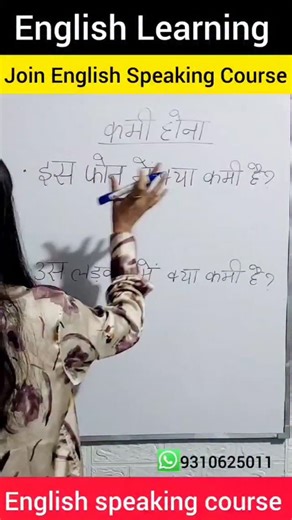 English Learning
Join English Speaking Course
कमी होना
इस फोन में क्या कमी है?
उस में क्या कमी है?
9310625011
English speaking course